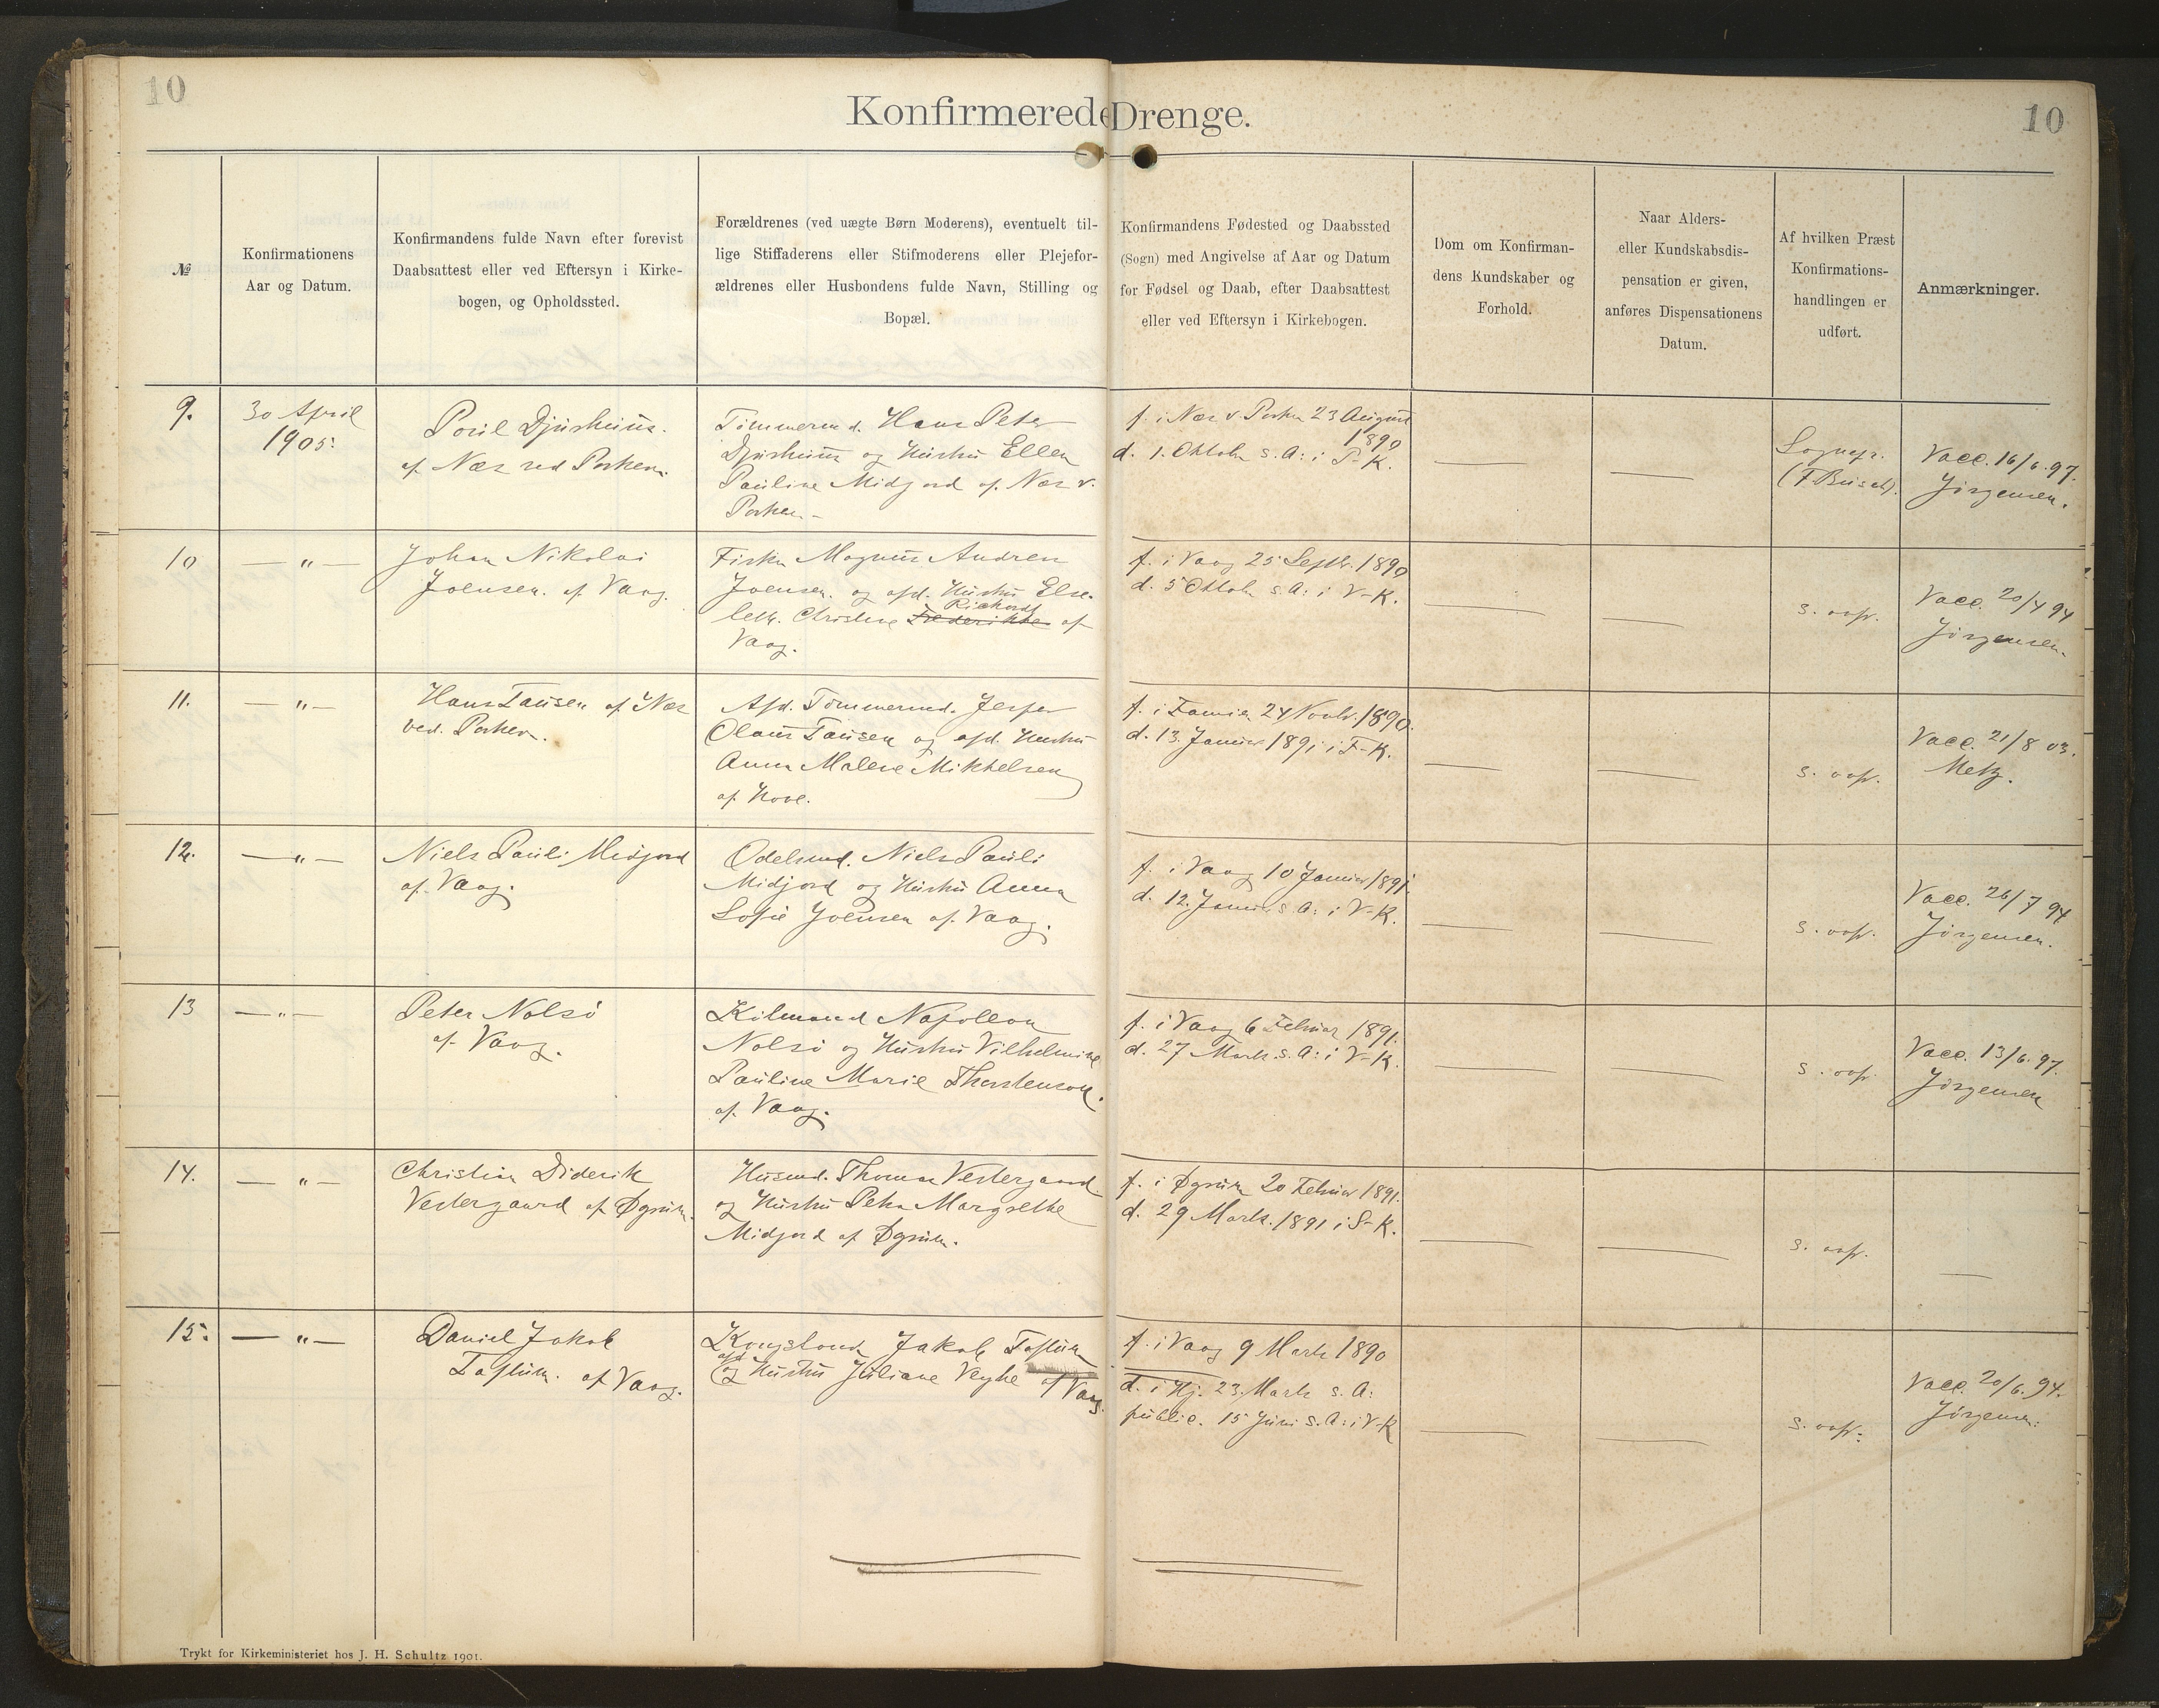 10
Konfirmerede Drenge.
10
№
Konfirmationens
Aar og Datum.
Konfirmandens fulde Navn efter forevist
Daabsattest eller ved Eftersyn i Kirke-
bogen, og Opholdssted.
Forældrenes (ved uægte Børn Moderens), eventuelt til-
lige Stiffaderens eller Stifmoderens eller Plejefor-
ældrenes eller Husbondens fulde Navn, Stilling og
Bopæl.
Konfirmandens Fødested og Daabssted
(Sogn) med Angivelse af Aar og Datum
for Fødsel og Daab, efter Daabsattest
eller ved Eftersyn i Kirkebogen.
Dom om Konfirman-
dens Kundskaber og
Forhold.
Naar Alders-
eller Kundskabsdis-
pensation er given,
anføres Dispensationens
Datum.
Af hvilken Præst
Konfirmations-
handlingen er
udført.
Anmærkninger.
9.
30 April
1905.
Poul Djurhuus.
af Næs ved Porkere.
Tømmermd. Hans Peter
Djurhuus og Hustru Ellen
Pauline Midjord af Næs v.
Porkere.
f. i Næs v. Porkere 23 August
1890
d. 1. Oktobr s. A. i P-K.
Sognepr.
(F. Busch).
Vacc. 16/6. 97.
Jörgensen.
10
— " —
Johan Nikolai
Joensen. af Vaag.
Fisker Magnus Andreas
Joensen. og afd. Hustru Else-
beth. Christine Frederikke af
Richardt
Vaag.
f. i Vaag 25 Septbr. 1890
d. 5 Oktobr s. A. i V-K.
s. ovfr.
Vacc. 20/4 94
Jörgensen.
11.
— " —
Hans Tausen af Næs
ved. Porkere.
Afd. Tømmermd. Jesper
Olaus Tausen og afd. Hustru
Anna Malene Mikkelsen
af Hove.
f. i Famien 24 Novbr. 1890.
d. 13. Januar 1891 i F-K.
s. ovfr.
Vacc. 21/8 03.
Metz.
12.
— " —
Niels Pauli Midjord
af Vaag.
Odelsmd. Niels Pauli
Midjord og Hustru Anna
Sofie Joensen af Vaag.
f. i Vaag 10 Januar 1891
d. 12. Januar s. A. i V-K.
s. ovfr.
Vacc. 26/7 94
Jörgensen.
13
— " —
Peter Nolsö
af Vaag.
Kölmand Napoleon
Nolsö og Hustru Vilhelmine
Pauline Marie Thorstenson.
af Vaag.
f. i Vaag 6 Februar 1891.
d. 27 Marts s. A. i V-K.
s. ovfr.
Vacc. 13/6. 97.
Jörgensen
14.
— " —
Christian Diderik
Vestergaard af Øgrum.
Husmd. Thomas Vestergaard
og Hustru Petra Margrethe
Midjord af Øgrum.
f. i Øgrum 20 Februar 1891.
d. 29 Marts. 1891 i S-K.
s. ovfr.
15.
— " —
Daniel Jakob
Toftum. af Vaag.
Kongsbond Jakob Toftum
afd.
og Hustru Juliane Veyhe af Vaag.
f. i Vaag 9 Marts 1890
d. i Hj. 23. Marts s. A.
public. 15 Juni s. A. i V-K
s. ovfr.
Vacc. 20/6. 94.
Jörgensen.
Trykt for Kirkeministeriet hos J. H. Schultz 1901.